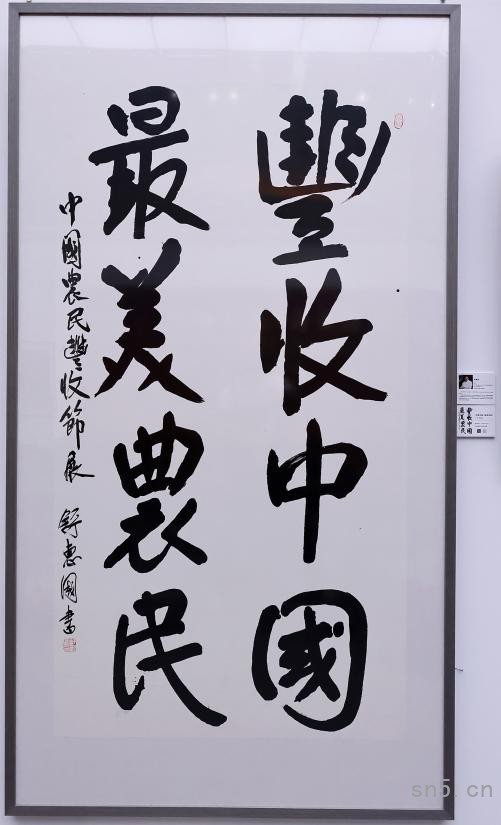 豐收中國
最美農民
中國農民豐收節展 舒惠國書
sn5.cn